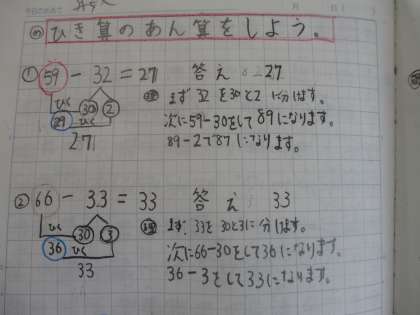 め ひき算のあん算をしよう。
① 59 - 32 = 27 答え 27
ひく 30 2
29 ひく
27
まず32を30と2に分けます。
次に59-30をして89になります。
89-2で87になります。
② 66 - 33 = 33 答え 33
ひく 30 3
36 ひく
33
まず、33を30と3に分けます。
次に66-30をして36になります。
36-3をして33になります。